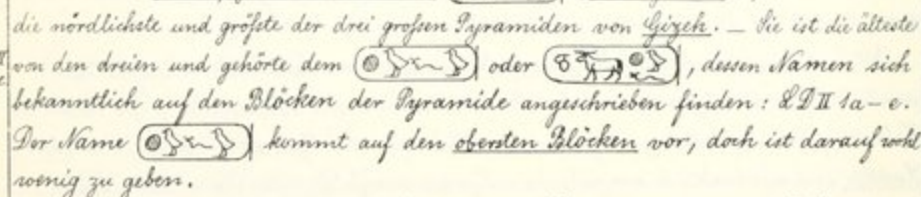 die nördlichste und größte der drei großen Pyramiden von Gizeh. — Sie ist die älteste
von den dreien und gehörte dem 𓍹𓐍𓅱𓆑𓅱𓍺 oder , dessen Namen sich
bekanntlich auf den Blöcken der Pyramide angeschrieben finden: LD II 1a – e.
Der Name 𓍹𓐍𓅱𓆑𓅱𓍺 kommt auf den obersten Blöcken vor, doch ist darauf wohl
wenig zu geben.